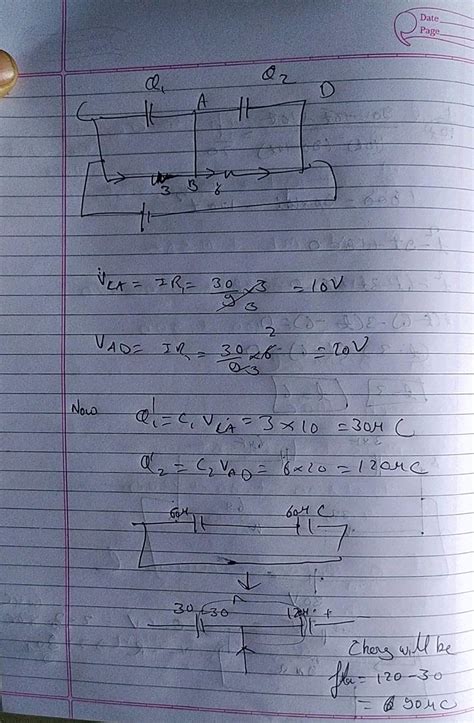 Date
Page
Q₁ Q₂
C A D
3 B 6
V_CA = IR₁ = 30/9 × 3 = 10V
V_AD = IR = 30/9 × 6 = 20V
Now Q₁' = C₁ V_CA = 3 × 10 = 30μC
Q₂' = C₂ V_AD = 6 × 20 = 120μC
60μ 60μC
30 -30 120 +
Charg will be
= 120 - 30
= 90μC